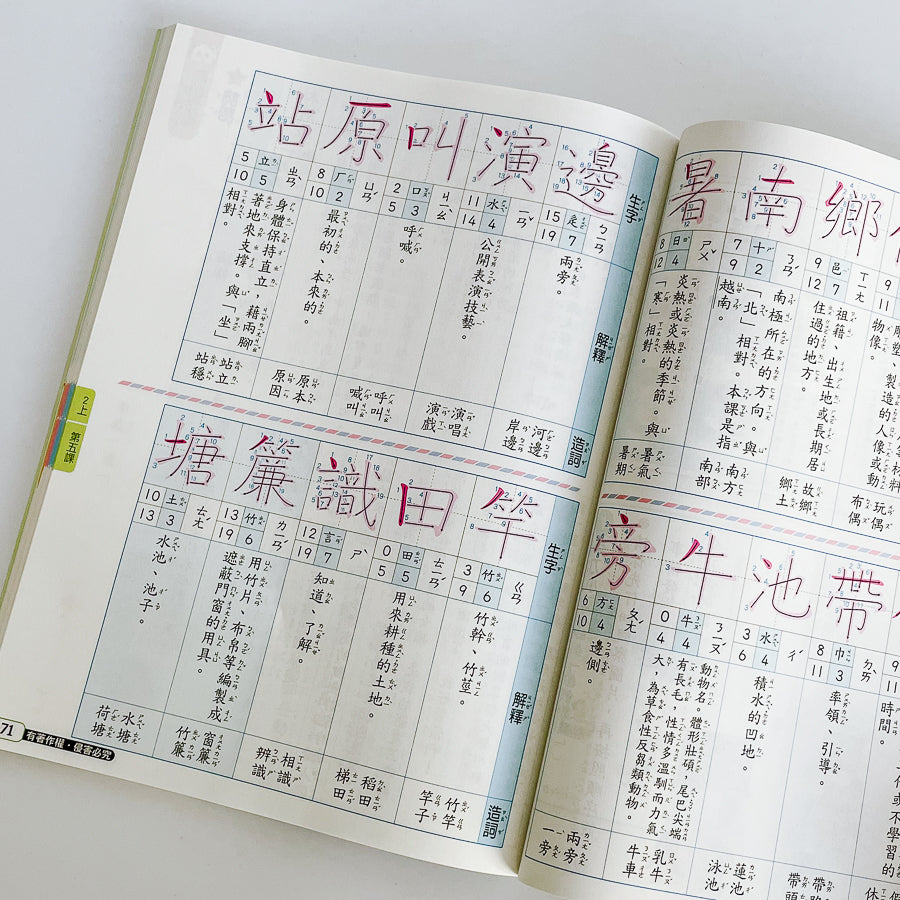 生字
解釋
造詞
邊
ㄅㄧㄢ
15 辵 7 19
兩旁。
河邊
岸邊
演
ㄧㄢˇ
11 水 4 14
公開表演技藝。
演唱
演戲
叫
ㄐㄧㄠˋ
2 口 3 5
呼喊。
呼叫
喊叫
原
ㄩㄢˊ
8 厂 2 10
最初的、本來的。
原本
原因
站
ㄓㄢˋ
5 立 5 10
身體保持直立，藉兩腳
著地來支撐。與「坐」
相對。
站立
站穩
生字
解釋
造詞
竿
ㄍㄢ
3 竹 6 9
竹幹、竹莖。
竹竿
竿子
田
ㄊㄧㄢˊ
0 田 5 5
用來耕種的土地。
稻田
梯田
識
ㄕˋ
12 言 7 19
知道、了解。
相識
辨識
簾
ㄌㄧㄢˊ
13 竹 6 19
用竹片、布帛等編製成
遮蔽門窗的用具。
窗簾
竹簾
塘
ㄊㄤˊ
10 土 3 13
水池、池子。
水塘
荷塘
2上
第五課
71
有著作權・侵害必究
鄉
ㄒㄧㄤ
9 邑 7 12
祖籍、出生地或長期居
住過的地方。
故鄉
鄉土
南
ㄋㄢˊ
7 十 2 9
南極所在的方向。與
「北」相對。本課是指
越南。
南方
南部
暑
ㄕㄨˇ
8 日 4 12
炎熱或炎熱的季節。與
「寒」相對。
暑氣
暑期
製造的人像或動
物像。
玩偶
布偶
帶
ㄉㄞˋ
8 巾 3 11
率領、引導。
帶頭
池
ㄔˊ
3 水 4 6
積水的凹地。
蓮池
泳池
牛
ㄋㄧㄡˊ
0 牛 4 4
動物名。體形壯碩，尾巴尖端
有長毛，性情多溫馴而力氣
大，為草食性反芻類動物。
乳牛
牛車
旁
ㄆㄤˊ
6 方 4 10
邊側。
兩旁
一旁
時間。